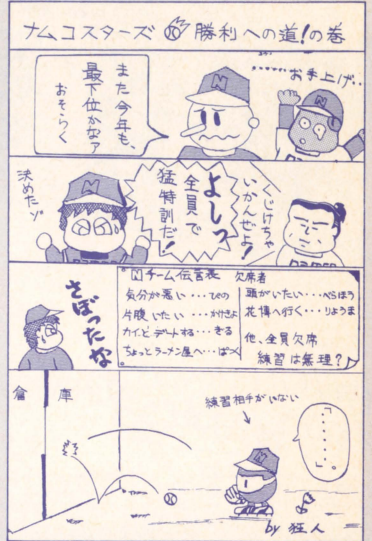 ナムコスターズ 勝利への道!の巻
‥‥‥お手上げ‥
また今年も、
最下位かなァ
おそらく
くじけちゃ
いかんぜよ!
よしっ
全員で
猛特訓だ!
決めたゾ
N チーム伝言表 欠席者
気分が悪い・・・ぴの
片腹いたい・・・かげきよ
カイとデートする・・・ぎる
ちょっとラーメン屋へ・・・ぱっく
頭がいたい・・・べらぼう
花博へ行く・・・りょうま
他、全員欠席
練習は無理?
さぼったな
倉庫
練習相手がいない
「・・・・・・。」
by 狂人